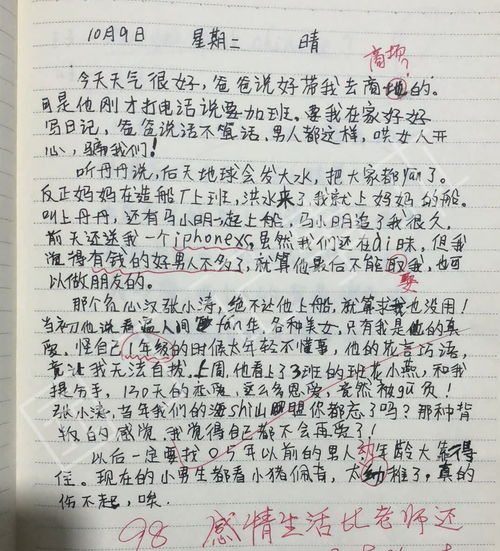 10月9日 星期二 晴
商场?
今天天气很好,爸爸说好带我去商地的。
可是他刚才打电话说要加班。要我在家好好
写日记,爸爸说话不算话,男人都这样,哄女人开
心,骗我们!
听丹丹说,后天地球会发大水,把大家都yan了。
反正妈妈在造船厂上班,洪水来了我就上妈妈的船。
叫上丹丹,还有马小明一起上船,马小明追了我很久,
前天还送我一个iphonexs,虽然我们还在ai昧,但我
觉得有钱的好男人不多了,就算他最后不能取我,也可
娶
以做朋友的。
那个负心汉张小涛,绝不让他上船,就算求我也没用!
当初他说看遍人间fan华,各种美女,只有我是他的真
爱。怪自己1年级的时候太年轻不懂事,他的花言巧语,
竟让我无法自拔。上周,他看上了3班的班花小燕,和我
提分手,130天的恋爱,这么多恩爱,竟然被gu负!
张小涛,当年我们的海shi山盟你都忘了吗?那种背
叛的感觉,我觉得自己都不会再爱了!
以后一定要找05年以前的男人,年龄大靠得
住。现在的小男生都看小猪佩奇,太幼稚了,真的
伤不起,唉
98 感情生活比老师还